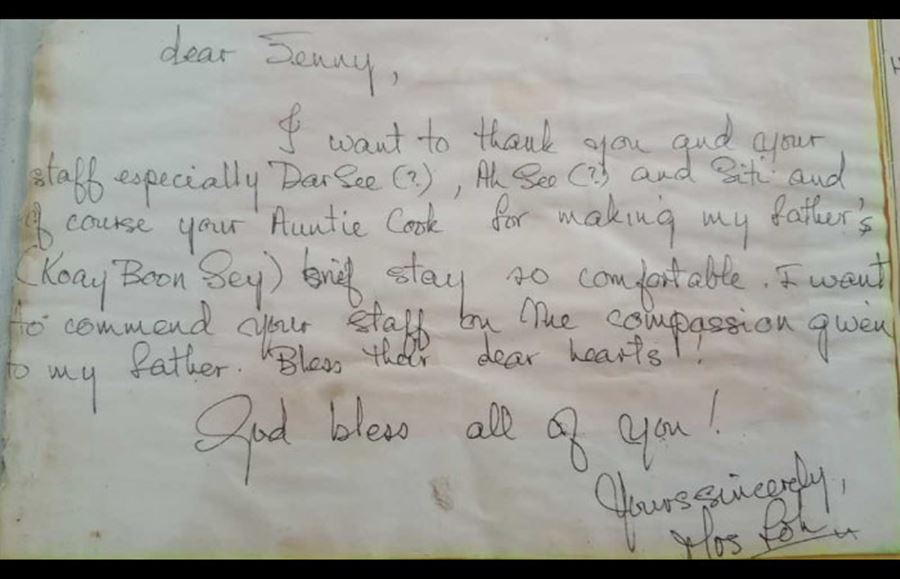 dear Jenny,
I want to thank you and your
staff especially Dar See (?), Ah See (?) and Siti and
of course your Auntie Cook for making my father's
(Koay Boon Sey) brief stay so comfortable. I want
to commend your staff on the compassion given
to my father. Bless their dear hearts!
God bless all of you!
Yours sincerely,
Loh